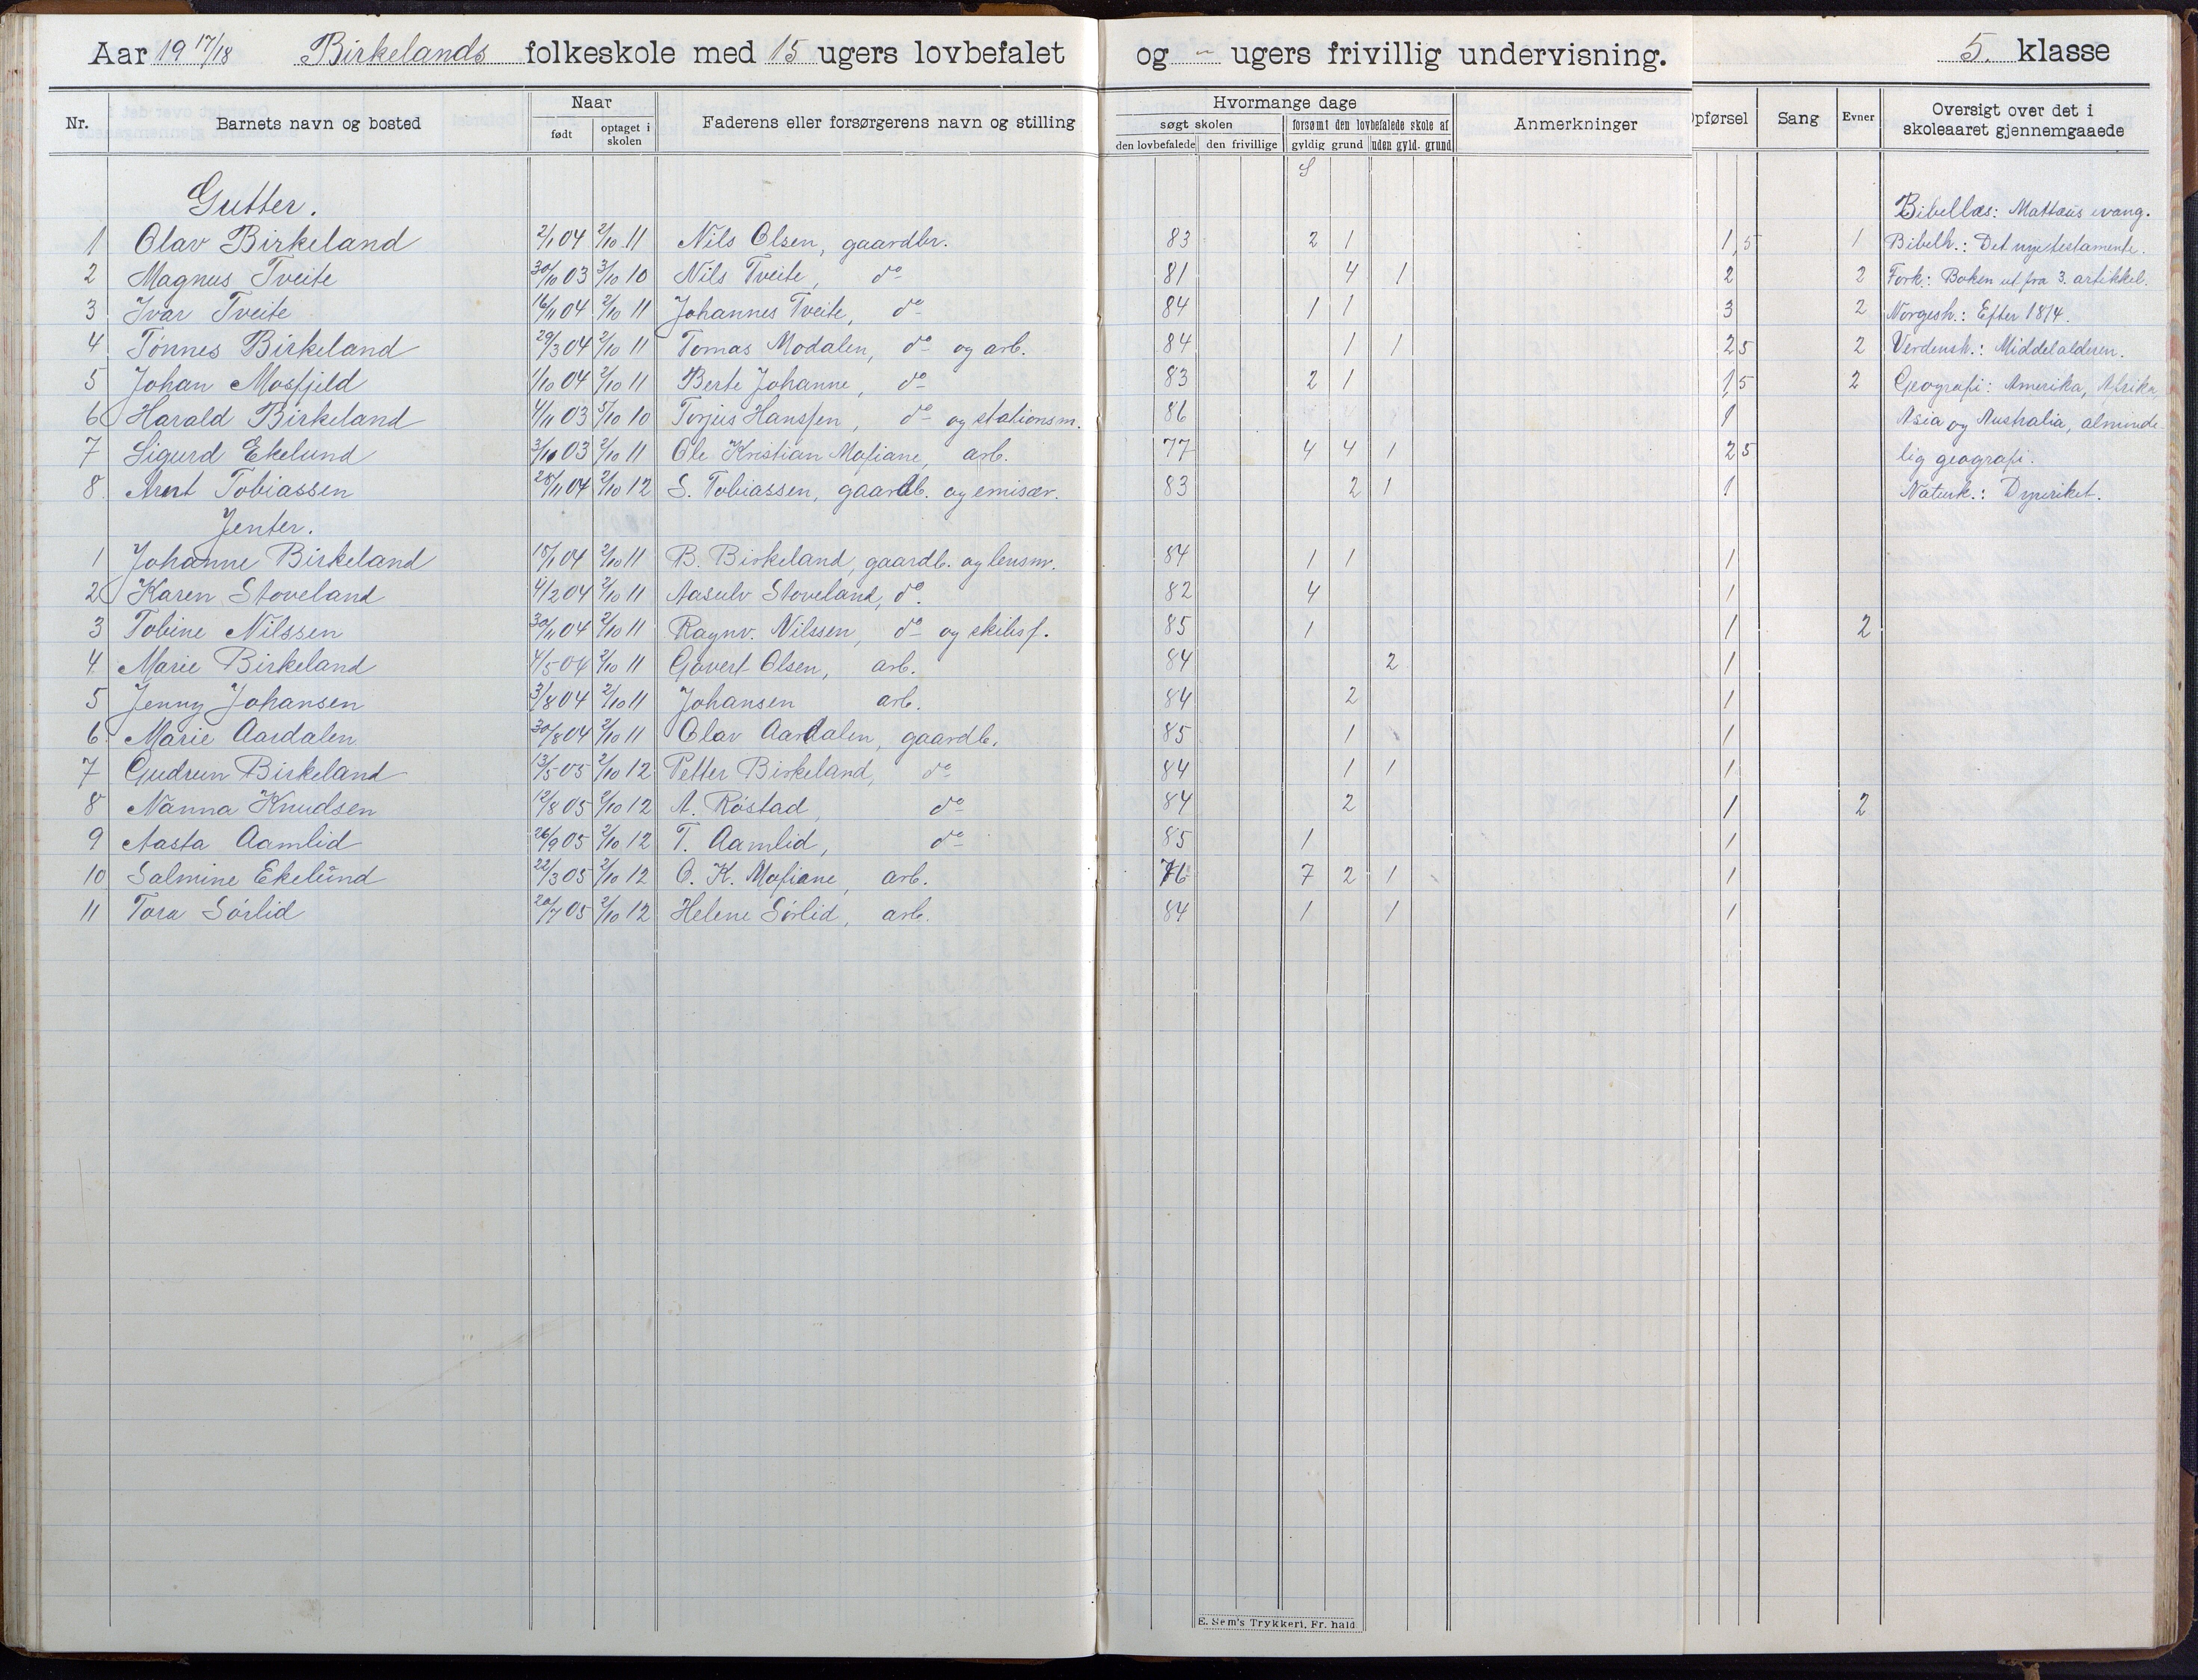 Aar 19 17/18 Birkelands folkeskole med 15 ugers lovbefalet og - ugers frivillig undervisning. 5. klasse
Nr. Barnets navn og bosted Naar Faderens eller forsørgerens navn og stilling Hvormange dage Anmerkninger Opførsel Sang Evner Oversigt over det i skoleaaret gjennemgaaede
født optaget i skolen søgt skolen forsømt den lovbefalede skole af
den lovbefalede den frivillige gyldig grund uden gyld. grund
S
Gutter. Bibellæs: Mattæus evang.
1 Olav Birkeland 2/1 04 2/10 11 Nils Olsen, gaardbr. 83 2 1 1,5 1 Bibelh.: Det nye testamente.
2 Magnus Tveite 30/10 03 3/10 10 Nils Tveite, do 81 4 1 2 2 Fork.: Boken ut fra 3. artikkel.
3 Ivar Tveite 16/11 04 2/10 11 Johannes Tveite, do 84 1 1 3 2 Norgesh.: Efter 1814.
4 Tönnes Birkeland 29/3 04 2/10 11 Tomas Modalen, do og arb. 84 1 1 2 5 2 Verdensh.: Middelalderen.
5 Johan Mosfjeld 1/10 04 2/10 11 Berte Johanne, do 83 2 1 1 5 2 Geografi: Amerika, Afrika
6 Harald Birkeland 4/11 03 5/10 10 Torjus Hanssen, do og stationsm. 86 1 Asia og Australia, alminde
7 Sigurd Ekelund 3/10 03 2/10 11 Ole Kristian Mosiane, arb. 77 4 4 1 2 5 lig geografi.
8. Arnt Tobiassen 28/11 04 2/10 12 S. Tobiassen, gaardb. og emisær. 83 2 1 1 Naturk.: Dyreriket.
Jenter.
1 Johanne Birkeland 15/1 04 2/10 11 B. Birkeland, gaardb. og lensm. 84 1 1 1
2 Karen Stoveland 4/2 04 2/10 11 Aasulv Stoveland, do. 82 4 1
3 Tobine Nilssen 30/11 04 2/10 11 Ragnv. Nilssen, do og skibsf. 85 1 1 2
4. Marie Birkeland 4/5 04 2/10 11 Govert Olsen, arb. 84 2 1
5 Jenny Johansen 3/8 04 2/10 11 Johansen arb. 84 2 1
6 Marie Aardalen 30/8 04 2/10 11 Olav Aardalen, gaardb. 85 1 1
7 Gudrun Birkeland 13/5 05 2/10 12 Petter Birkeland, do 84 1 1 1
8 Nanna Knudsen 12/8 05 2/10 12 A. Röstad, do 84 2 1 2
9 Aasta Aamlid 26/9 05 2/10 12 T. Aamlid, do 85 1 1
10 Salmine Ekelund 22/3 05 2/10 12 O. K. Mosiane, arb. 76 7 2 1 1
11 Tora Sörlid 20/7 05 2/10 12 Helene Sörlid, arb. 84 1 1 1
E. Sem's Trykkeri, Fr. hald